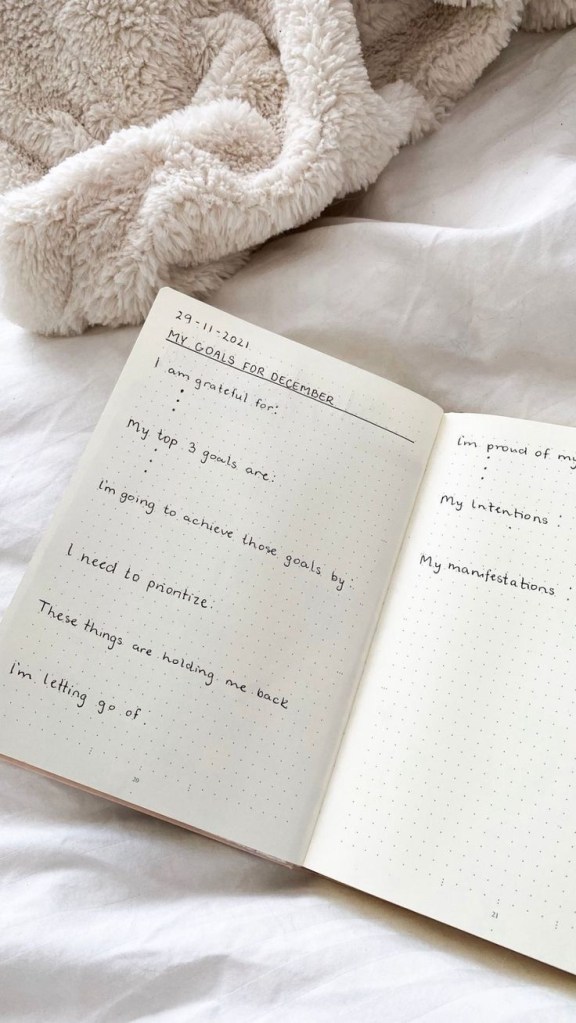 29-11-2021
MY GOALS FOR DECEMBER
I am grateful for:
My top 3 goals are:
I'm going to achieve those goals by:
I need to prioritize:
These things are holding me back
I'm letting go of.
20
I'm proud of my
My Intentions :
My manifestations :
21